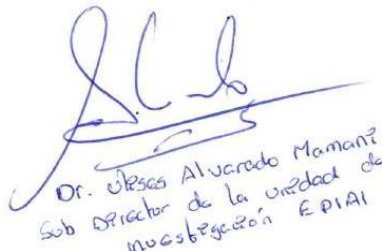 Dr. Ulises Alvarado Mamani
Sub Director de la unidad de
investigación EPIAI